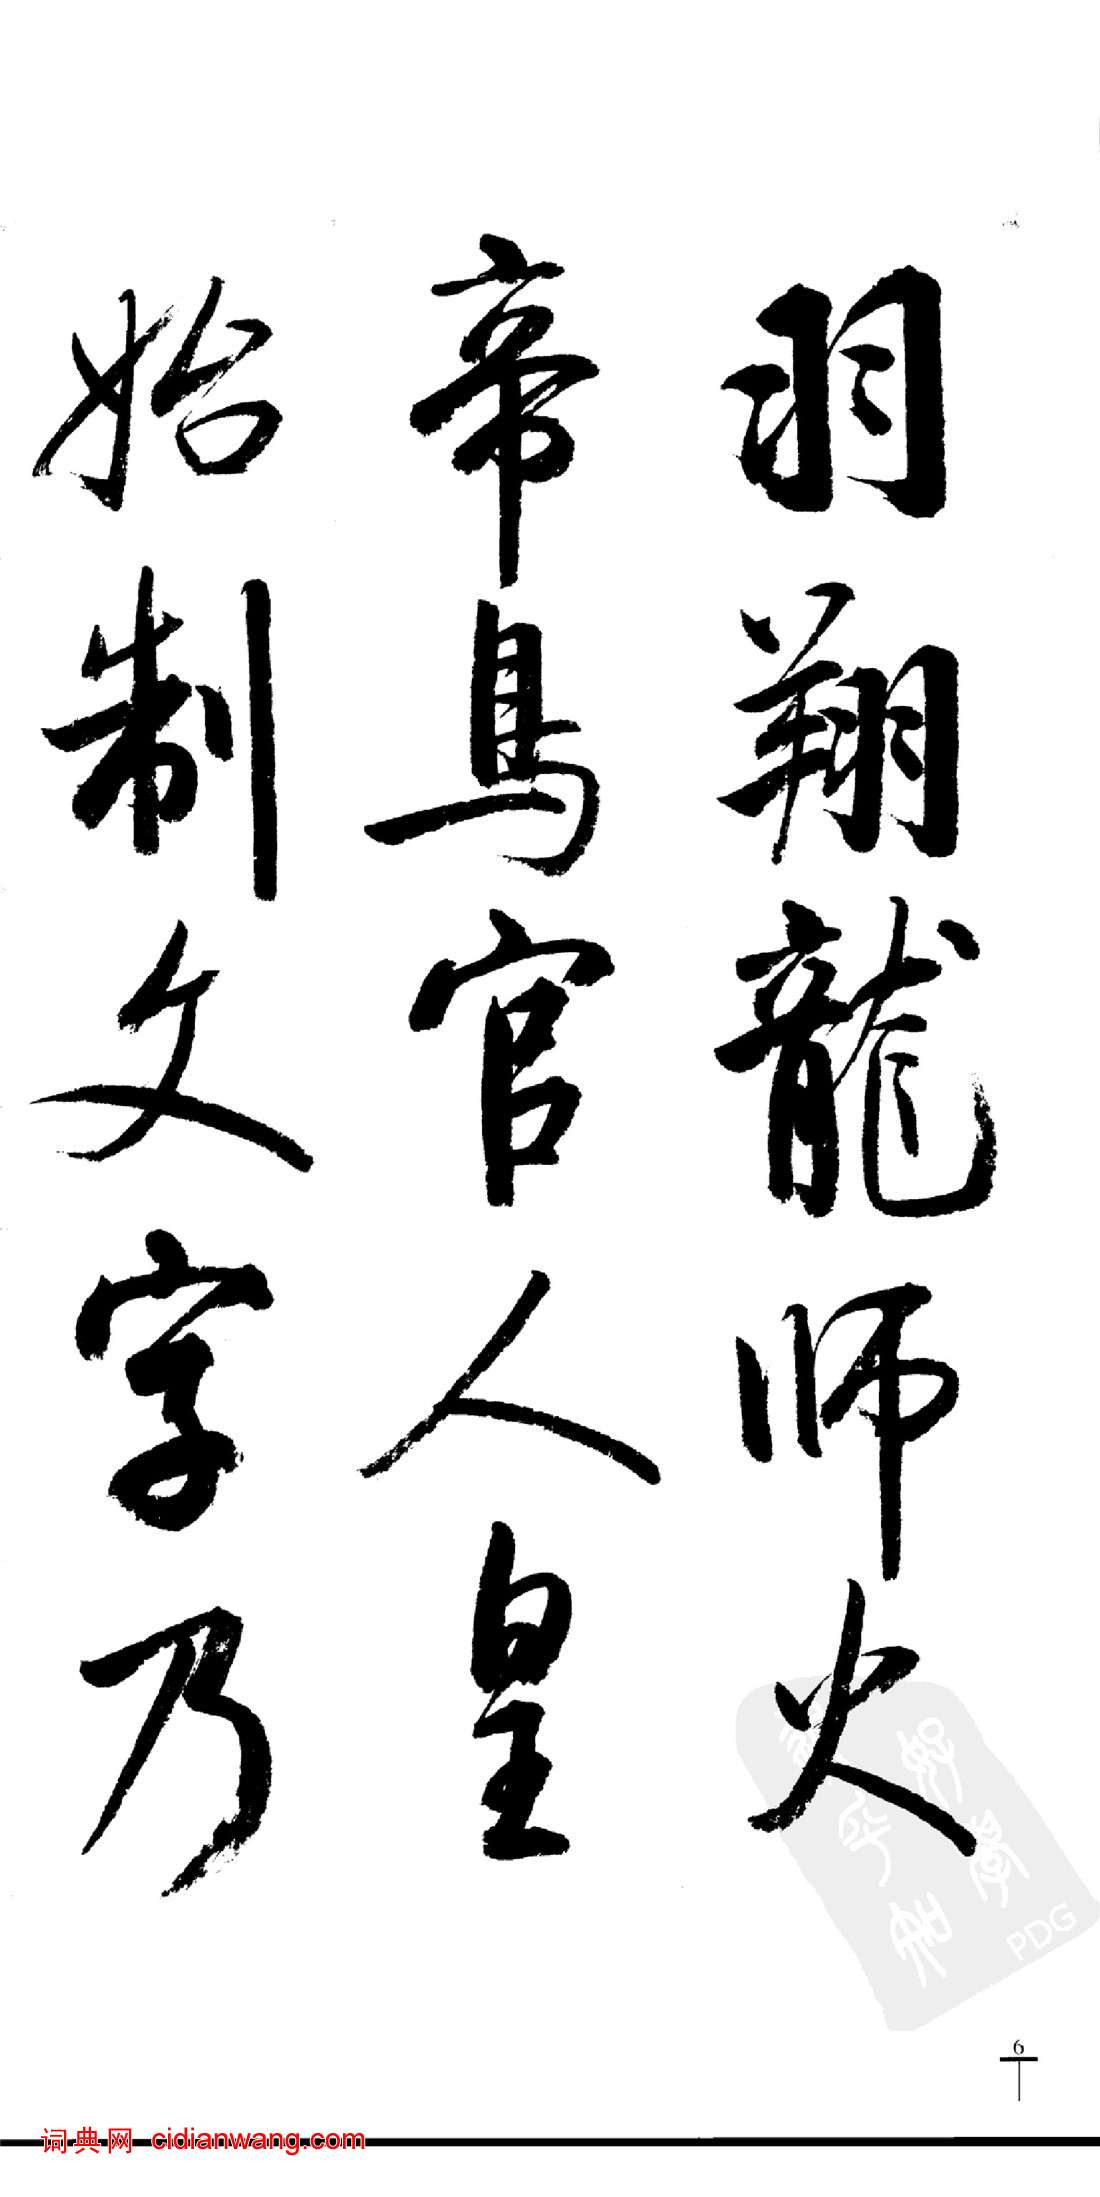 羽翔龍师火
帝鳥官人皇
始制文字乃
PDG
6
词典网 cidianwang.com